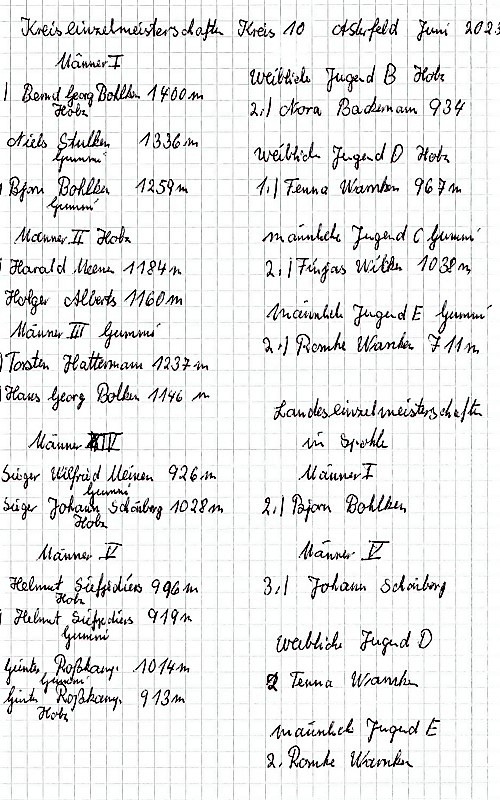 Kreiseinzelmeisterschaften Kreis 10 Astfeld Juni 2023
Männer I
Bernd Georg Bohlken 1400 m
Holz
Niels Stulken 1336 m
Gummi
Björn Bohlken 1259 m
Gummi
Männer II Holz
Harald Meenen 1184 m
Holger Alberts 1160 m
Männer III Gummi
Torsten Hattermann 1237 m
Hans Georg Bolken 1146 m
Männer IV
Sieger Wilfried Meinen 926 m
Gummi
Sieger Johann Schönberg 1028 m
Holz
Männer V
Helmut Siefjediers 996 m
Holz
Helmut Siefjediers 919 m
Gummi
Günter Roßkamp. 1014 m
Gummi
Günter Roßkamp. 913 m
Holz
Weibliche Jugend B Holz
2.) Nora Backemann 934
Weibliche Jugend D Holz
1.) Fenna Warnken 967 m
männliche Jugend C Gummi
2.) Finjas Wilken 1038 m
männlich Jugend E Gummi
2.) Romke Warnken 711 m
Landeseinzelmeisterschaften
in Spohle
Männer I
2.) Björn Bohlken
Männer IV
3.) Johann Schönberg
Weibliche Jugend D
2 Fenna Warnken
männlich Jugend E
2. Romke Warnken